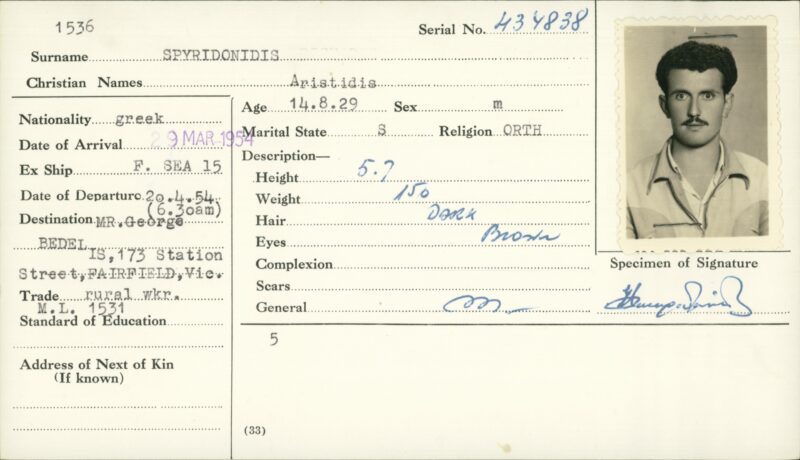 1536
Serial No. 434838
Surname SPYRIDONIDIS
Christian Names Aristidis
Nationality greek
Date of Arrival 29 MAR 1954
Ex Ship F. SEA 15
Date of Departure 20.4.54
(6.30am)
Destination MR. George
BEDEL
IS, 173 Station
Street, FAIRFIELD, Vic.
Trade rural wkr.
M.L. 1531
Standard of Education
Address of Next of Kin
(If known)
Age 14.8.29 Sex m
Marital State S Religion ORTH
Description—
Height 5.7
Weight 150
Hair Dark
Eyes Brown
Complexion
Scars
General
5
(33)
Specimen of Signature